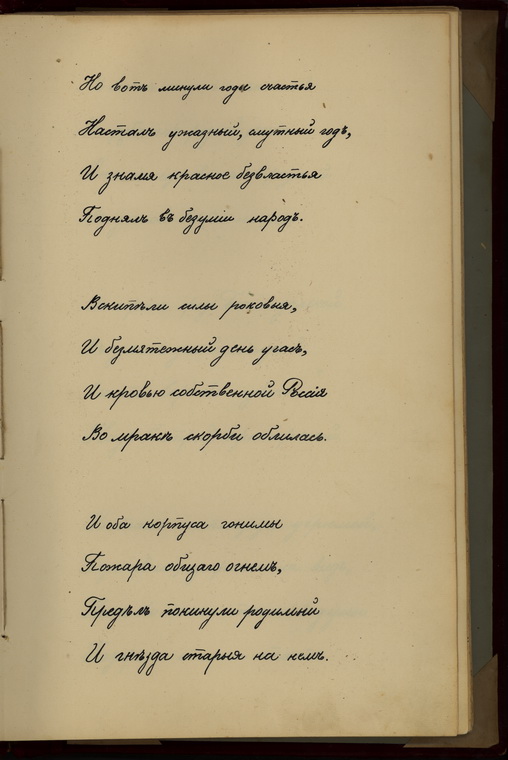 Но вотъ минули годы счастья
Насталъ ужасный, смутный годъ,
И знамя красное безвластья
Поднялъ въ безуміи народъ.
Вскипѣли силы роковыя,
И безмятежный день угасъ,
И кровью собственной Россія
Во мракѣ скорби облилась.
И оба корпуса гонимы
Пожара общаго огнемъ,
Предѣлъ покинули родимый
И гнѣзда старыя на немъ.